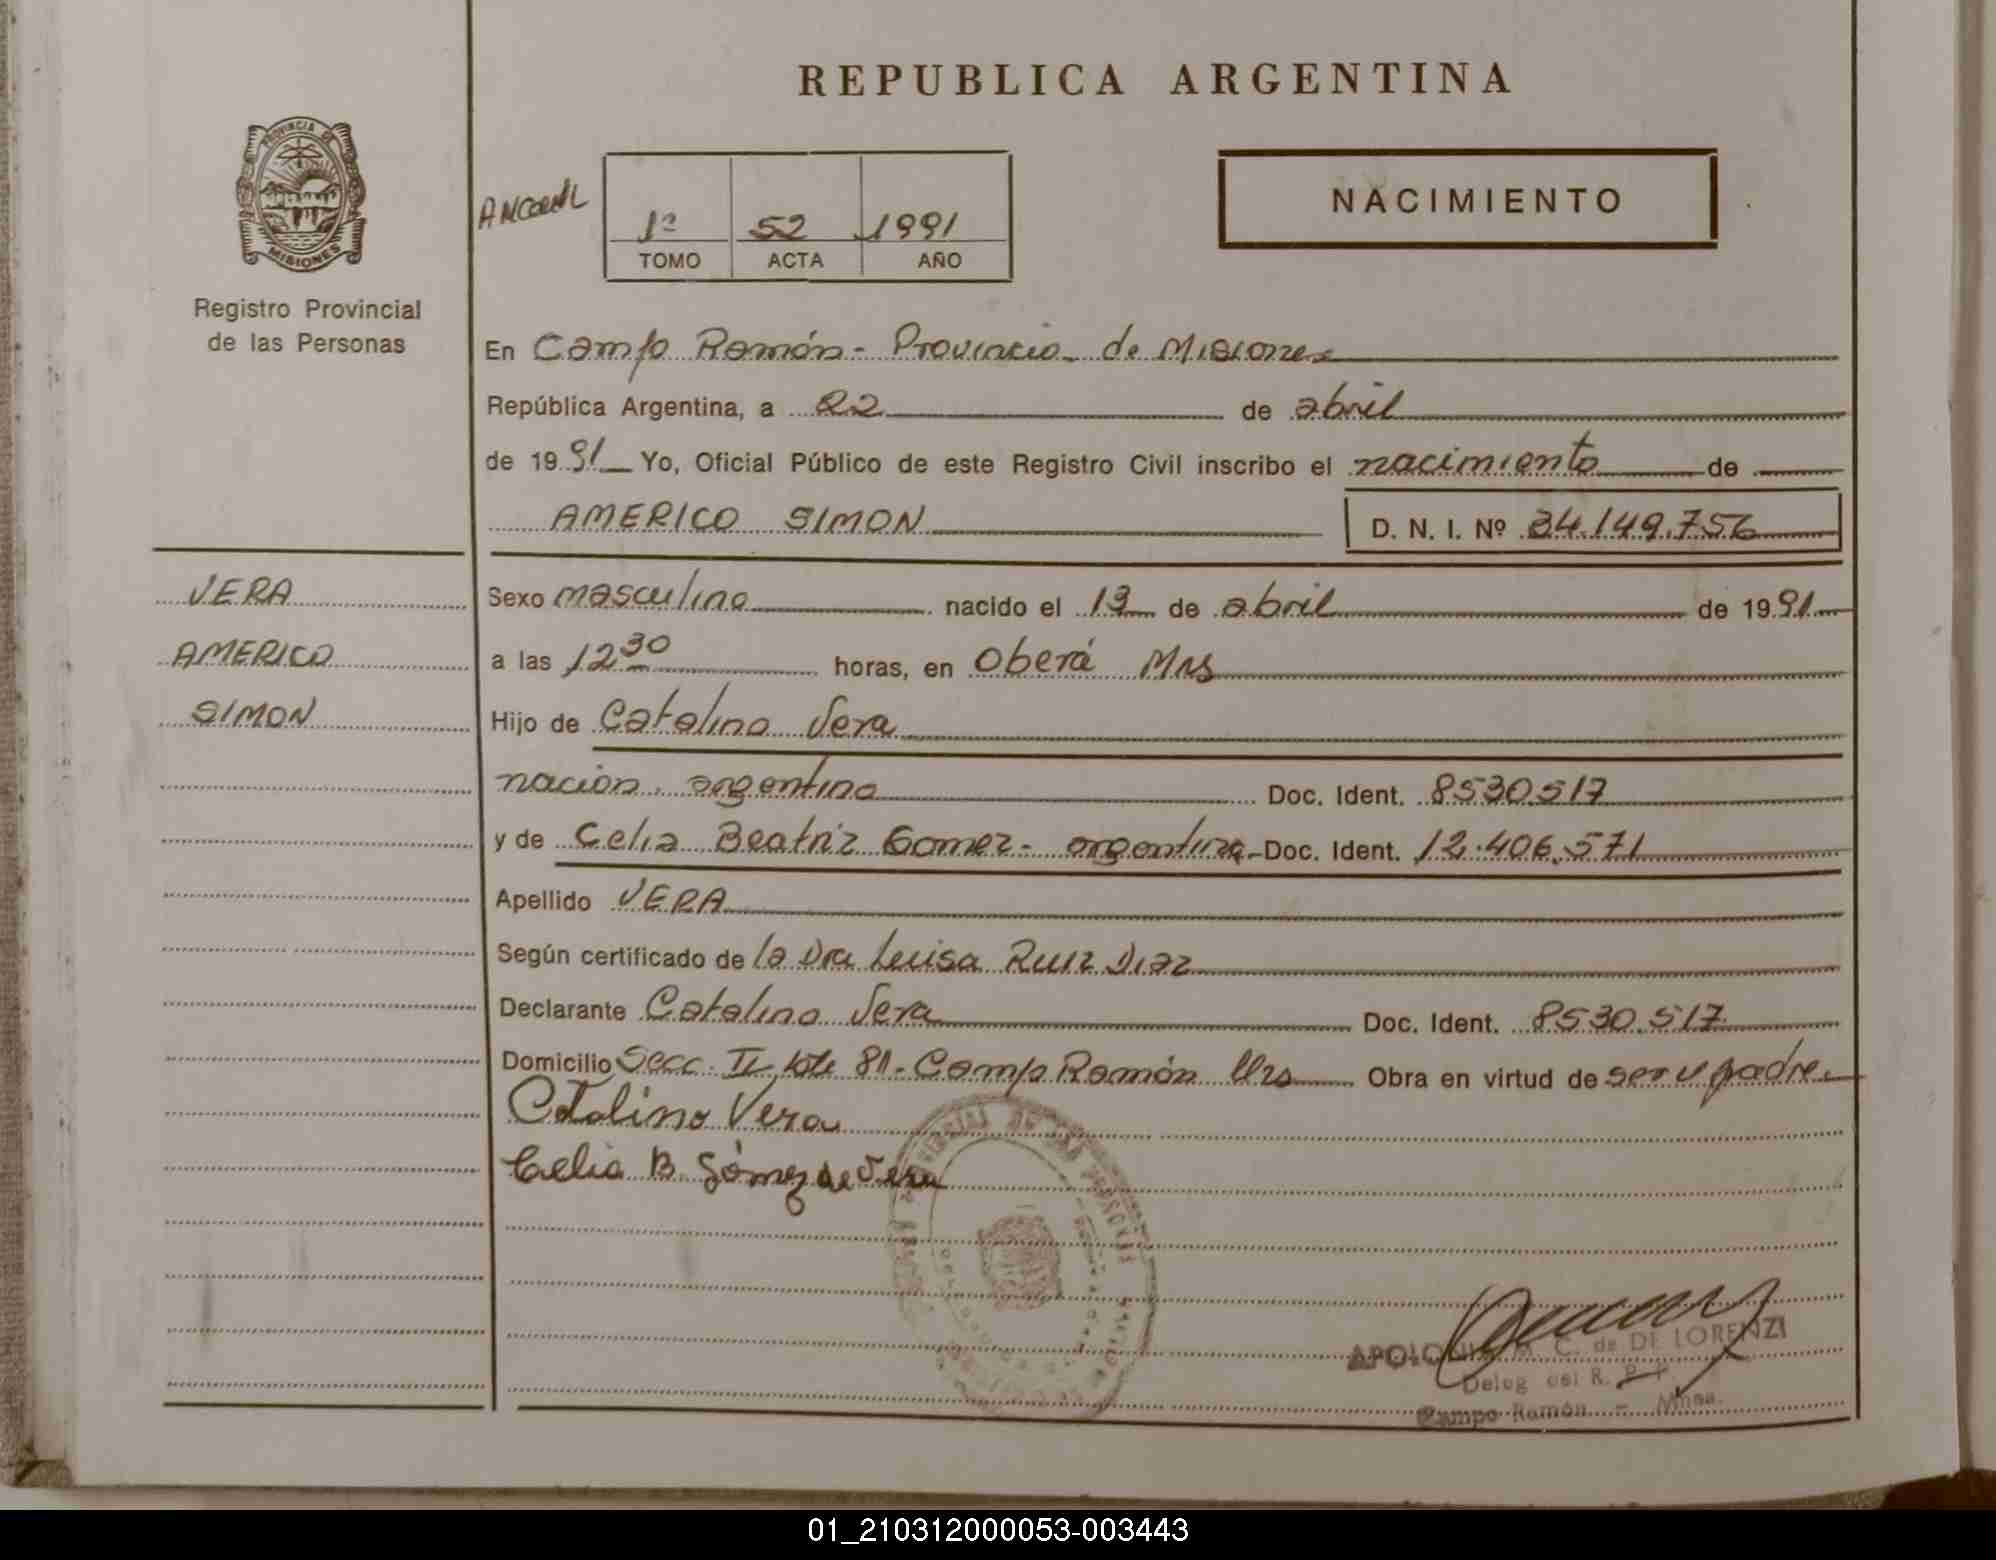 REPUBLICA ARGENTINA
PROVINCIA DE
MISIONES
Registro Provincial
de las Personas
1º 52 1991
TOMO ACTA AÑO
NACIMIENTO
En Campo Ramón - Provincia de Misiones
República Argentina, a 22 de abril
de 1991 Yo, Oficial Público de este Registro Civil inscribo el nacimiento de
AMERICO SIMON D. N. I. Nº 34.149.756
VERA
AMERICO
SIMON
Sexo masculino nacido el 13 de abril de 1991
a las 12 30 horas, en Oberá Mns
Hijo de Catalino Vera
nación. argentina Doc. Ident. 8530.517
y de Celia Beatriz Gomez - argentina - Doc. Ident. 12.406.571
Apellido VERA
Según certificado de la Dra Luisa Ruiz Diaz
Declarante Catalino Vera Doc. Ident. 8530.517
Domicilio Secc. II lote 81 - Campo Ramón Obra en virtud de ser padre.
Catalino Vera
Celia B. Gómez de Vera
APOLONIA M. C. de DE LORENZI
Deleg del R. P. P.
Campo Ramón - Mnes.
01_210312000053-003443